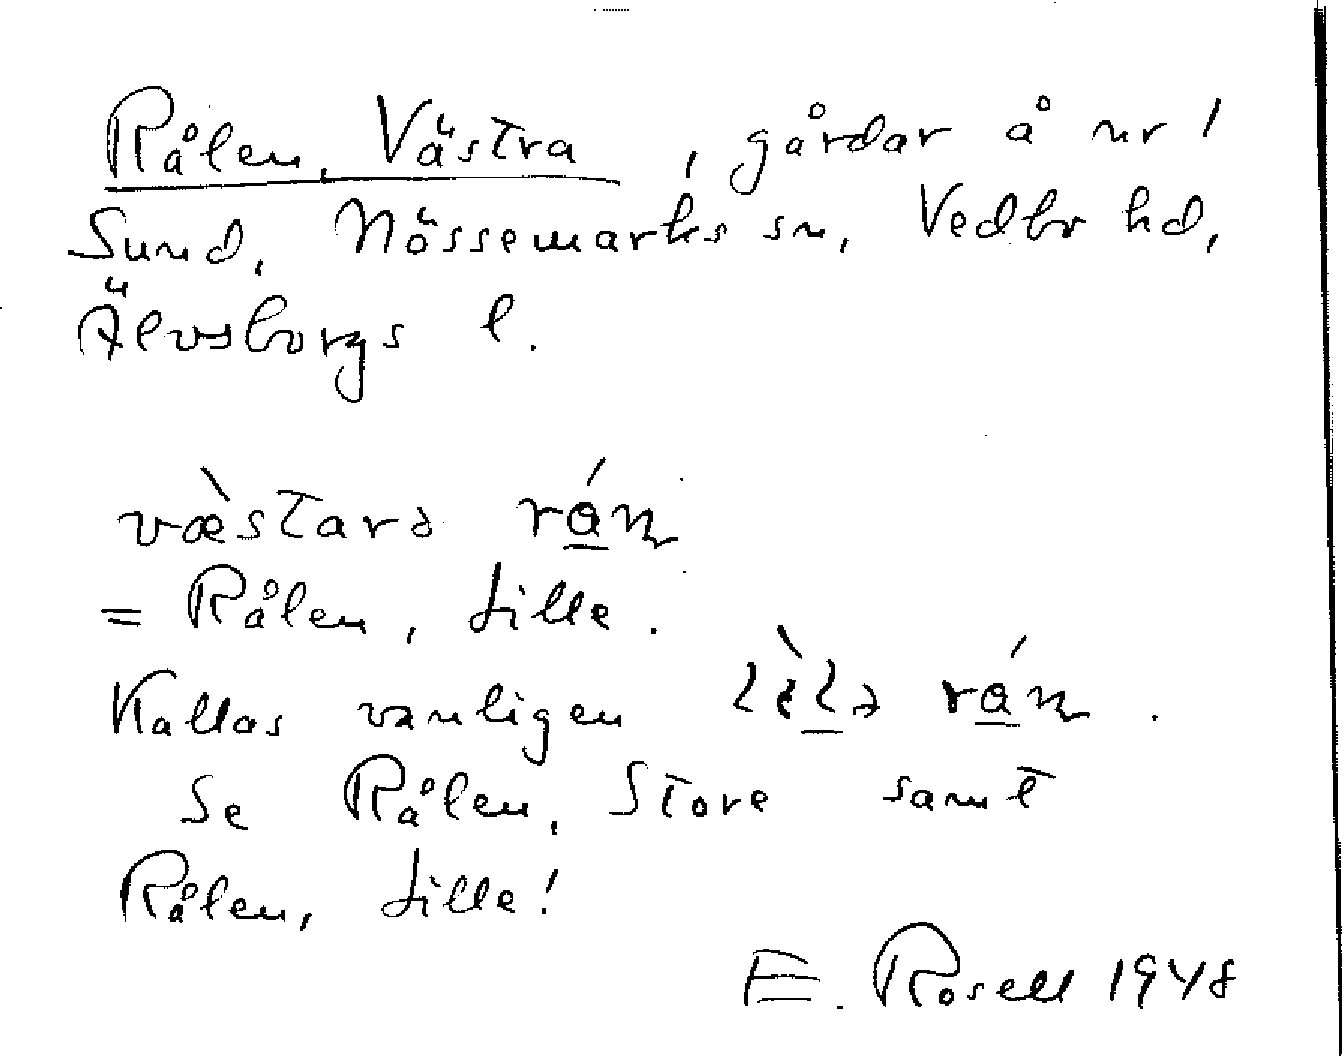 Rålen, Västra, gårdar å nr 1
Sund, Nössemarks sn, Vedbo hd,
Älvsborgs l.
væ̀starə rán
= Rålen, Lille.
Kallas vanligen lèlə rán.
Se Rålen, Store samt
Rålen, Lille!
E. Rosell 1948